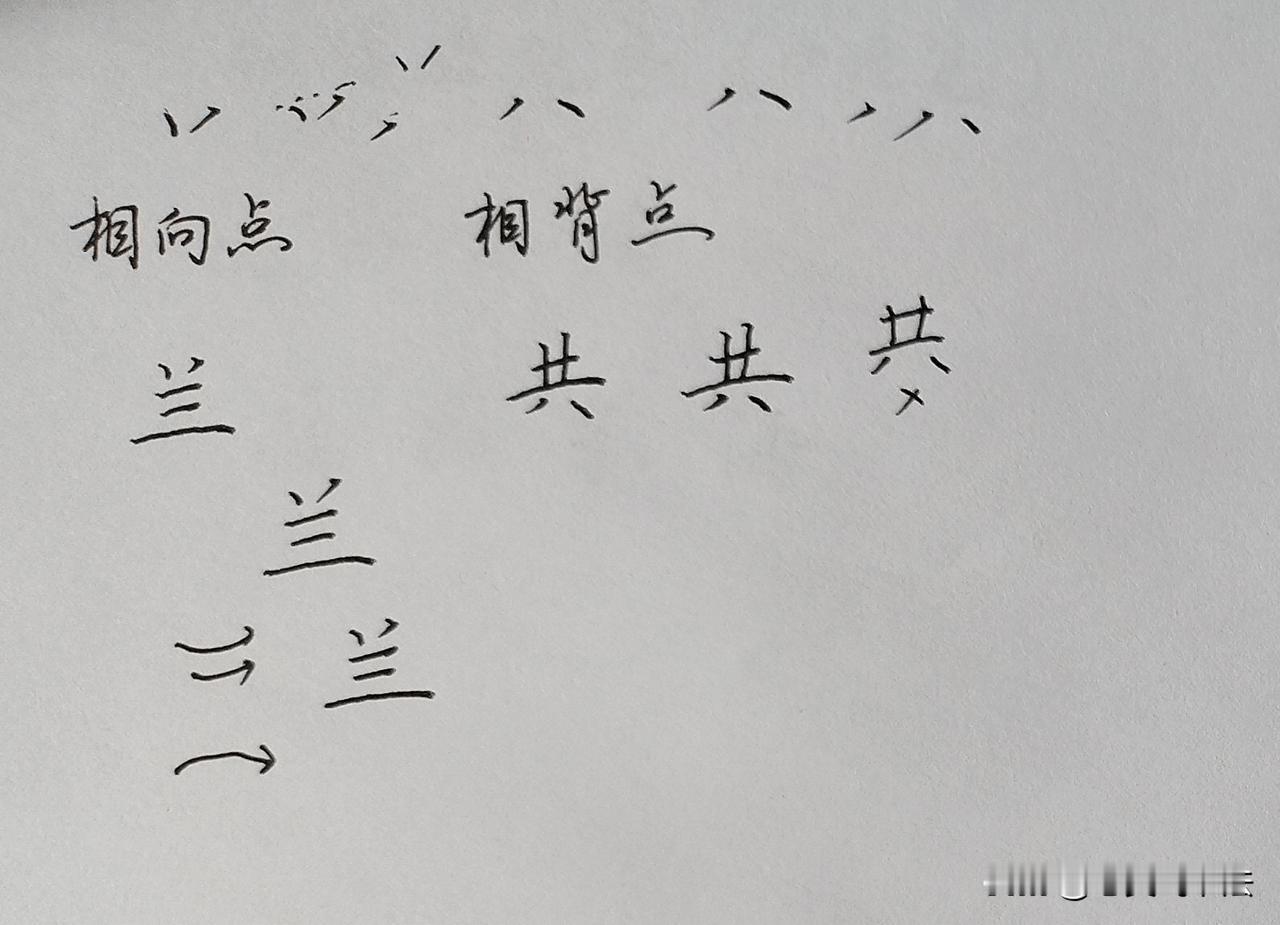 相向点 相背点
兰 共 共 共
×
兰
兰